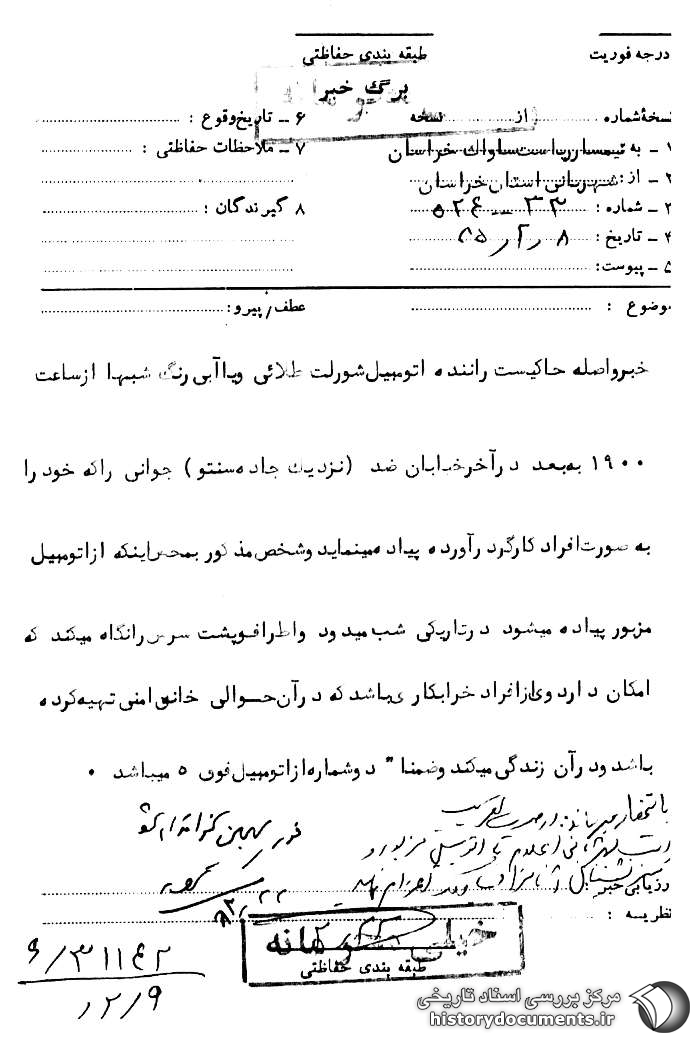 درجه فوریت
طبقه بندی حفاظتی
برگ خبر
نسخهٔ شماره ........ از ........ نسخه
۱ ـ به تیمسار ریاست ساواک خراسان
۲ ـ از: شهربانی استان خراسان
۳ ـ شماره : ۳۳ ـ ۵۲۶
۴ ـ تاریخ : ۸ ر ۲ ر ۲۵
۵ ـ پیوست:
۶ ـ تاریخ وقوع :
۷ ـ ملاحظات حفاظتی :
۸ گیرندگان :
موضوع :
عطف/پیرو:
خبر واصله حاکیست راننده اتومبیل شورلت طلائی ویا آبی رنگ شبها از ساعت
۱۹۰۰ به بعد در آخر خیابان ضد (نزدیک جاده سنتو) جوانی راکه خود را
به صورت افراد کارگر درآورده پیاده مینماید وشخص مذکور بمحض اینکه از اتومبیل
مزبور پیاده میشود در تاریکی شب میدود واطراف وپشت سرش رانگاه میکند که
امکان دارد وی از افراد خرابکاری باشد که در آن حوالی خانه امنی تهیه کرده
باشد ودر آن زندگی میکند وضمنا" دوشماره از اتومبیل فوق ۵ میباشد .
ارزیابی خبر
نظریه :
خیلی محرمانه
طبقه بندی حفاظتی
۹/۳۱۱۴۲
۱۲/۹
مرکز بررسی اسناد تاریخی
historydocuments.ir